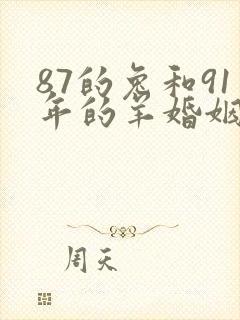 87的兔和91
年的羊婚姻
周天